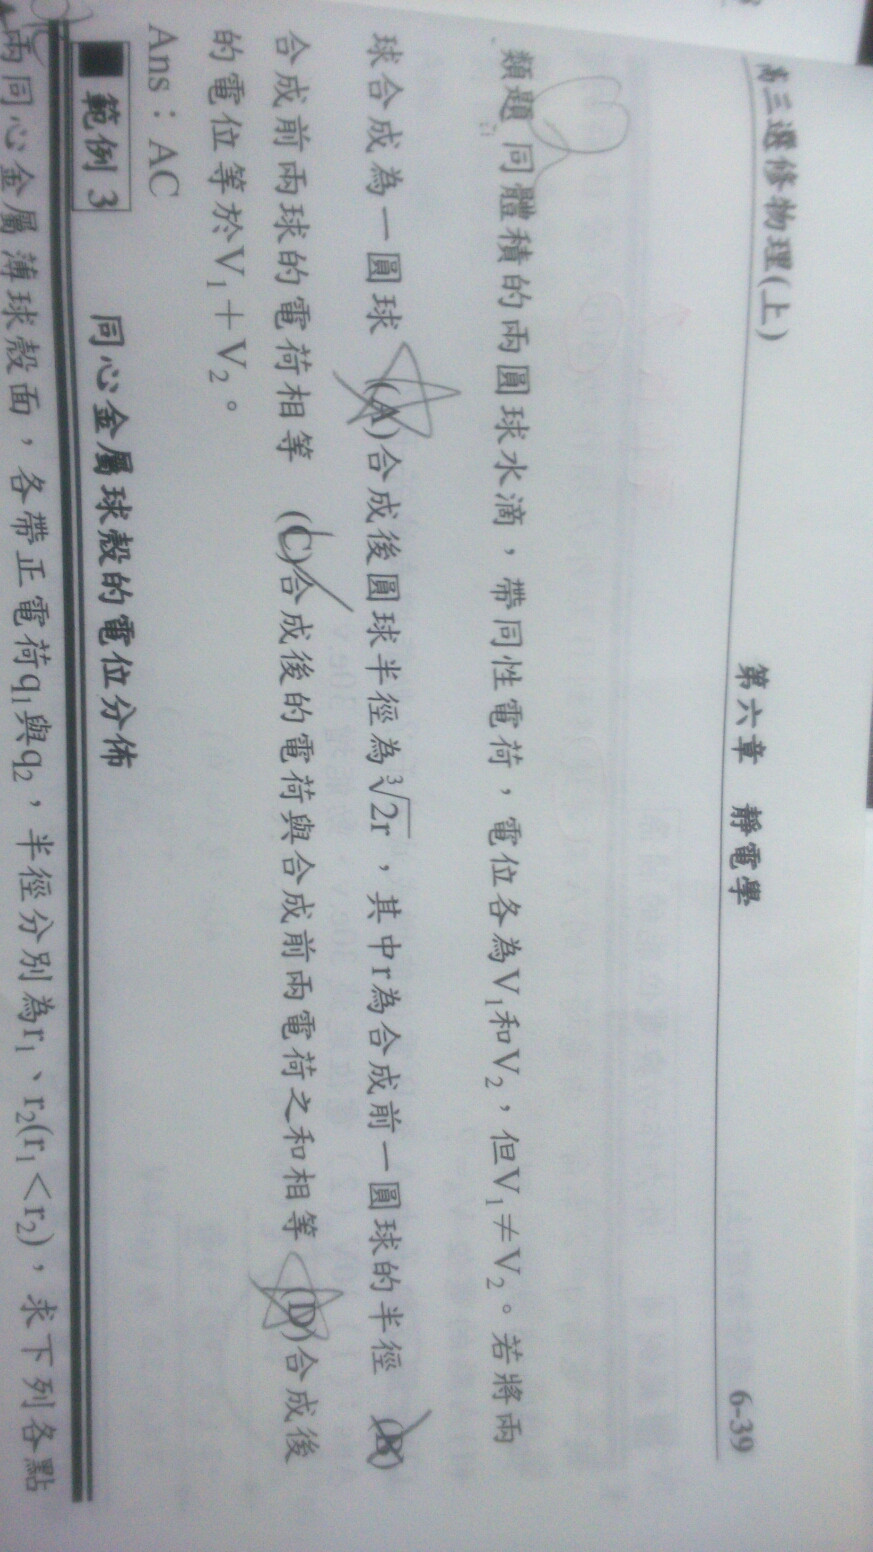 高三選修物理(上) 第六章 靜電學 6-39
類題 同體積的兩圓球水滴，帶同性電荷，電位各為V₁和V₂，但V₁≠V₂。若將兩
球合成為一圓球 (A)合成後圓球半徑為∛2r，其中r為合成前一圓球的半徑 (B)
合成前兩球的電荷相等 (C)合成後的電荷與合成前兩電荷之和相等 (D)合成後
的電位等於V₁＋V₂。
Ans：AC
範例 3 同心金屬球殼的電位分佈
兩同心金屬薄球殼面，各帶正電荷q₁與q₂，半徑分別為r₁、r₂(r₁＜r₂)，求下列各點